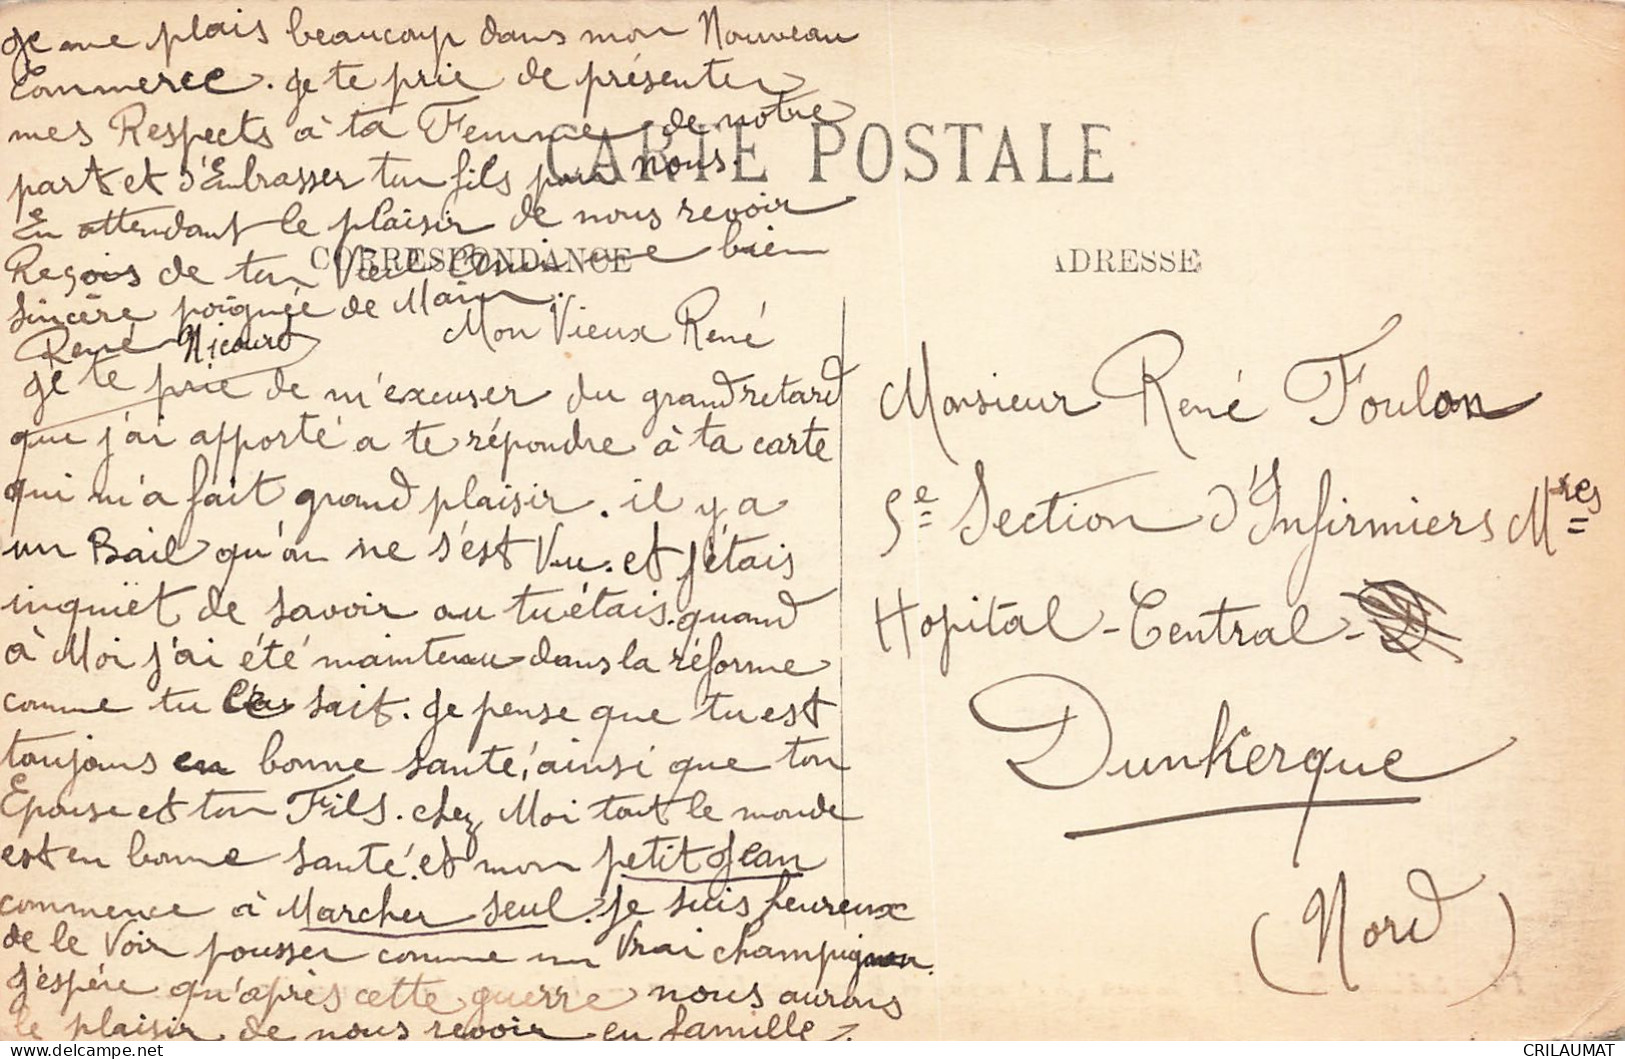 Je me plais beaucoup dans mon Nouveau
Commerce. Je te prie de présenter
mes Respects à ta Femme de notre
part et d'Embrasser ton fils pour nous.
En attendant le plaisir de nous revoir
Reçois de ton Vieil Ami une bien
Sincère poignée de Main.
René Nicourd
CARTE POSTALE
CORRESPONDANCE
ADRESSE
Mon Vieux René
Je te prie de m'excuser du grand retard
que j'ai apporté a te répondre à ta carte
qui m'a fait grand plaisir. il y a
un Bail qu'on ne s'est Vu. et j'étais
inquiët de savoir ou tu étais. quand
à Moi j'ai été maintenu dans la réforme
comme tu le sait. Je pense que tu est
toujours en bonne santé, ainsi que ton
Epouse et ton Fils. chez Moi tout le monde
est en bonne santé. et mon petit Jean
commence à Marcher seul. Je suis heureux
de le Voir pousser comme un Vrai champignon.
J'espére qu'aprés cette guerre nous aurons
le plaisir de nous revoir en famille.
Monsieur René Foulon
5e Section d'Infirmiers Mres
Hopital-Central-
Dunkerque
(Nord)
CRILAUMAT